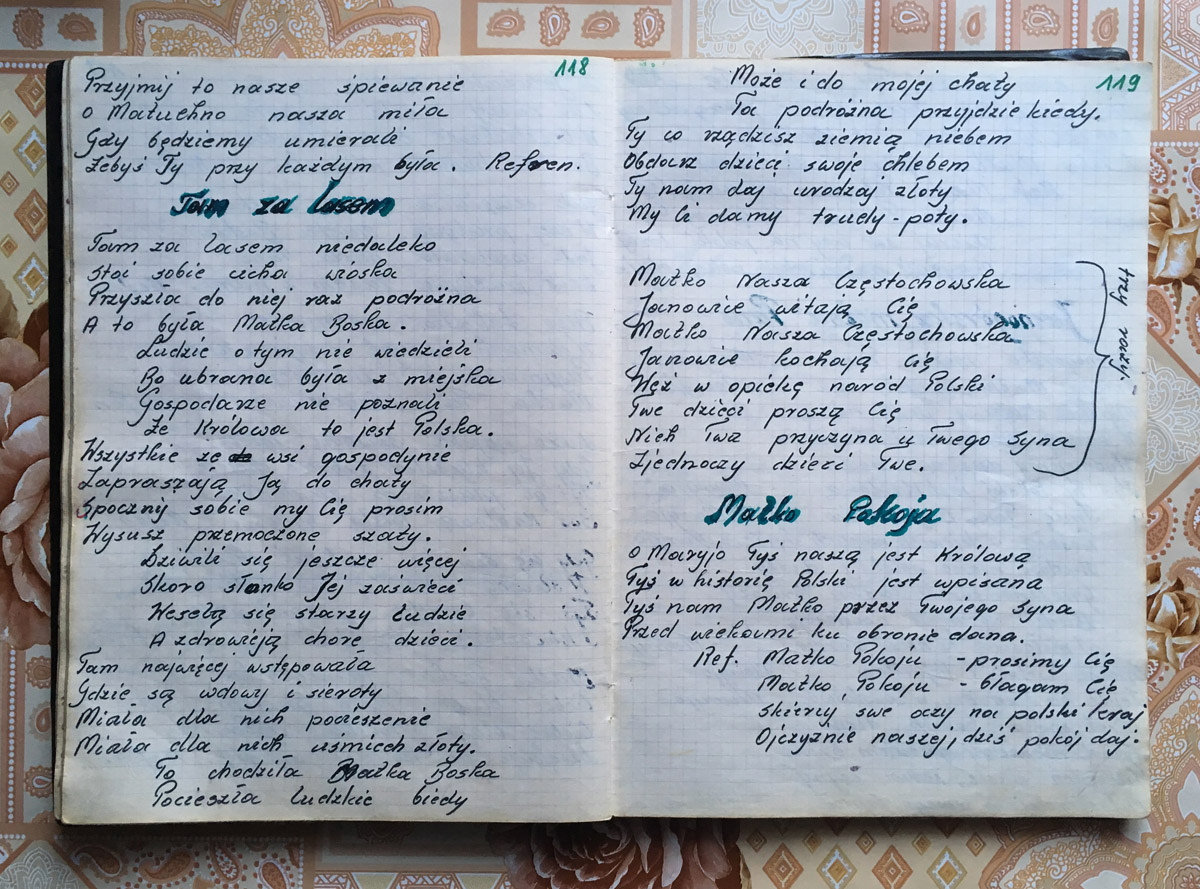 118
Przyjmij to nasze śpiewanie
o Matuchno nasza miła
Gdy będziemy umierali
Żebyś Ty przy każdym była. Refren.
Tam za lasem
Tam za lasem niedaleko
Stoi sobie cicha wioska
Przyszła do niej raz podróżna
A to była Matka Boska.
Ludzie o tym nie wiedzieli
Bo ubrana była z miejska
Gospodarze nie poznali
Że Królowa to jest Polska.
Wszystkie ze wsi gospodynie
Zapraszają Ją do chaty
Spocznij sobie my Cię prosim
Wysusz przemoczone szaty.
Dziwili się jeszcze więcej
Skoro słonko Jej zaświeci
Weselą się starzy Ludzie
A zdrowieją chore dzieci.
Tam najwięcej wstępowała
Gdzie są wdowy i sieroty
Miała dla nich pocieszenie
Miała dla nich uśmiech złoty.
To chodziła Matka Boska
Pocieszła ludzkie biedy
119
Może i do mojej chaty
Ta podróżna przyjdzie kiedy.
Ty co rządzisz ziemią niebem
Obdarz dzieci swoje chlebem
Ty nam daj urodzaj złoty
My Ci damy trudy - poty.
Matko Nasza Częstochowska
Janowie witają Cię
Matko Nasza Częstochowska
Janowie kochają Cię
Weź w opiekę naród Polski
Twe dzieci proszą Cię
Niech Twa przyczyna u Twego Syna
Zjednoczy dzieci Twe.
trzy razy.
Matko Pokoja
o Maryjo Tyś naszą jest Królową
Tyś w historię Polski jest wpisana
Tyś nam Matko przez Twojego Syna
Przed wiekami ku obronie dana.
Ref. Matko Pokoju - prosimy Cię
Matko, Pokoju - błagam Cię
Skieruj swe oczy na polski kraj
Ojczyznie naszej, dziś pokój daj.